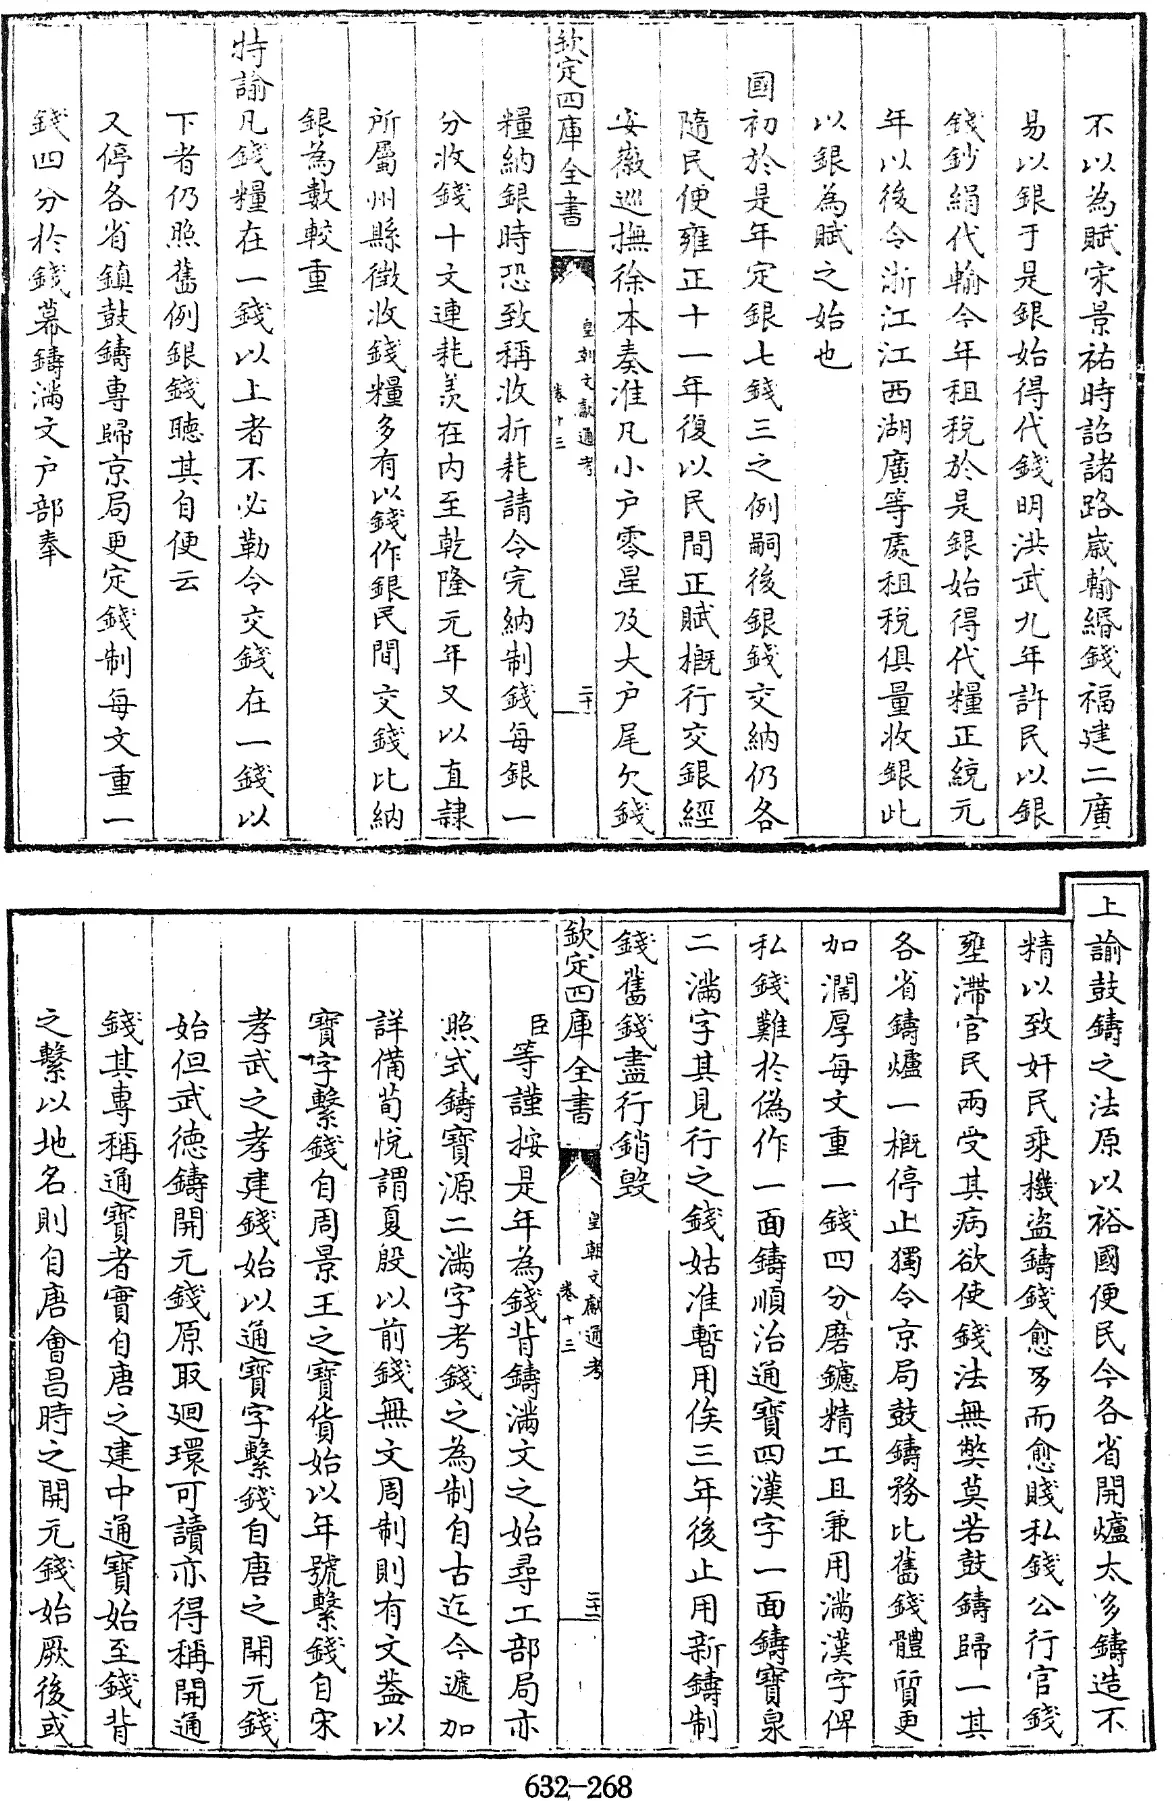 不以為賦宋景祐時詔諸路歲輸緡錢福建二廣
易以銀于是銀始得代錢明洪武九年許民以銀
錢鈔絹代輸今年租稅於是銀始得代糧正統元
年以後令浙江江西湖廣等處租稅俱量收銀此
以銀為賦之始也
國初於是年定銀七錢三之例嗣後銀錢交納仍各
隨民便雍正十一年復以民間正賦概行交銀經
安徽巡撫徐本奏准凡小戶零星及大戶尾欠錢
欽定四庫全書
皇朝文獻通考
卷十三
二十
糧納銀時恐致稱收折耗請令完納制錢每銀一
分收錢十文連耗羨在內至乾隆元年又以直隸
所屬州縣徵收錢糧多有以錢作銀民間交錢比納
銀為數較重
特諭凡錢糧在一錢以上者不必勒令交錢在一錢以
下者仍照舊例銀錢聽其自便云
又停各省鎮鼓鑄專歸京局更定錢制每文重一
錢四分於錢幕鑄滿文戶部奉
上諭鼓鑄之法原以裕國便民今各省開爐太多鑄造不
精以致奸民乘機盜鑄錢愈多而愈賤私錢公行官錢
壅滯官民兩受其病欲使錢法無弊莫若鼓鑄歸一其
各省鑄爐一概停止獨令京局鼓鑄務比舊錢體質更
加濶厚每文重一錢四分磨鑢精工且兼用滿漢字俾
私錢難於偽作一面鑄順治通寶四漢字一面鑄寶泉
二滿字其見行之錢姑准暫用俟三年後止用新鑄制
錢舊錢盡行銷毀
欽定四庫全書
皇朝文獻通考
卷十三
臣等謹按是年為錢背鑄滿文之始尋工部局亦
照式鑄寶源二滿字考錢之為制自古迄今遞加
詳備荀悅謂夏殷以前錢無文周制則有文葢以
寶字繫錢自周景王之寶貨始以年號繫錢自宋
孝武之孝建錢始以通寶字繫錢自唐之開元錢
始但武德鑄開元錢原取廻環可讀亦得稱開通
錢其專稱通寶者實自唐之建中通寶始至錢背
之繫以地名則自唐會昌時之開元錢始厥後或
632-268